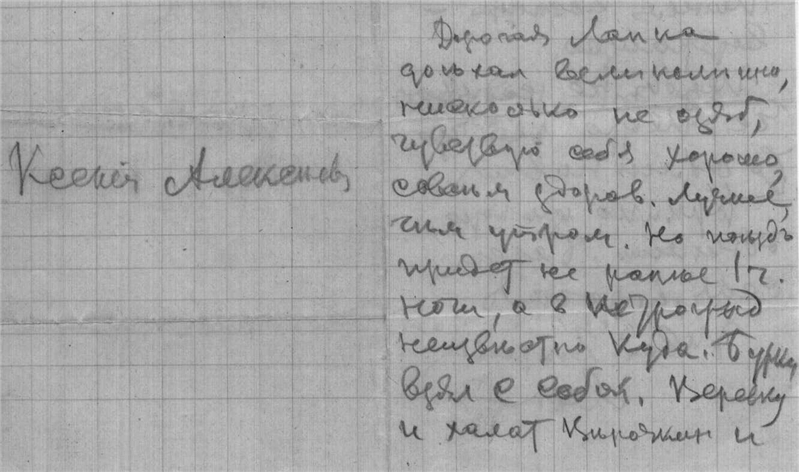 Ксения
Дорогая Лапка
доѣхал великолепно,
нисколько не озяб,
чувствую себя хорошо,
совсем здоров. Лучше,
чем утром. Но поѣздъ
придет не раньше 1 ч.
ночи, а в Петроград
неизвѣстно куда. Бурку
взял с собой. Веревку
и халат и